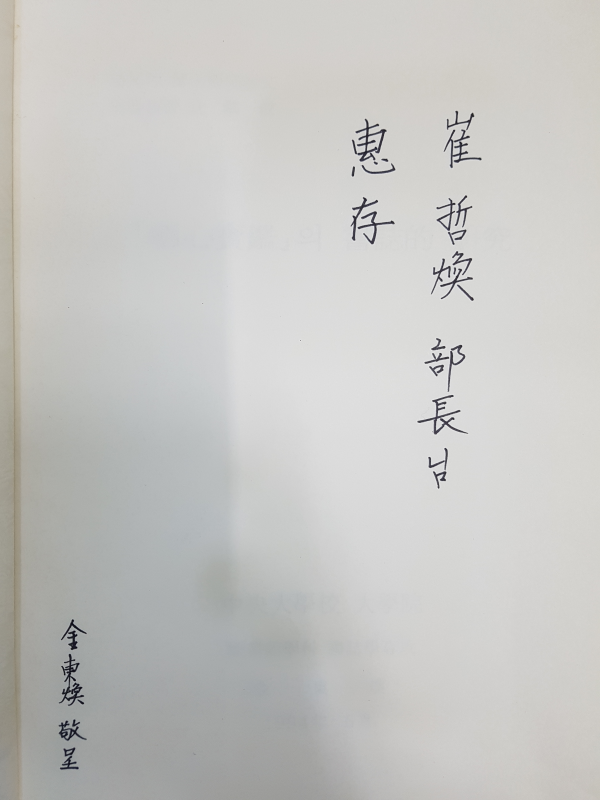 崔哲煥 部長님
惠存
金東煥 敬呈